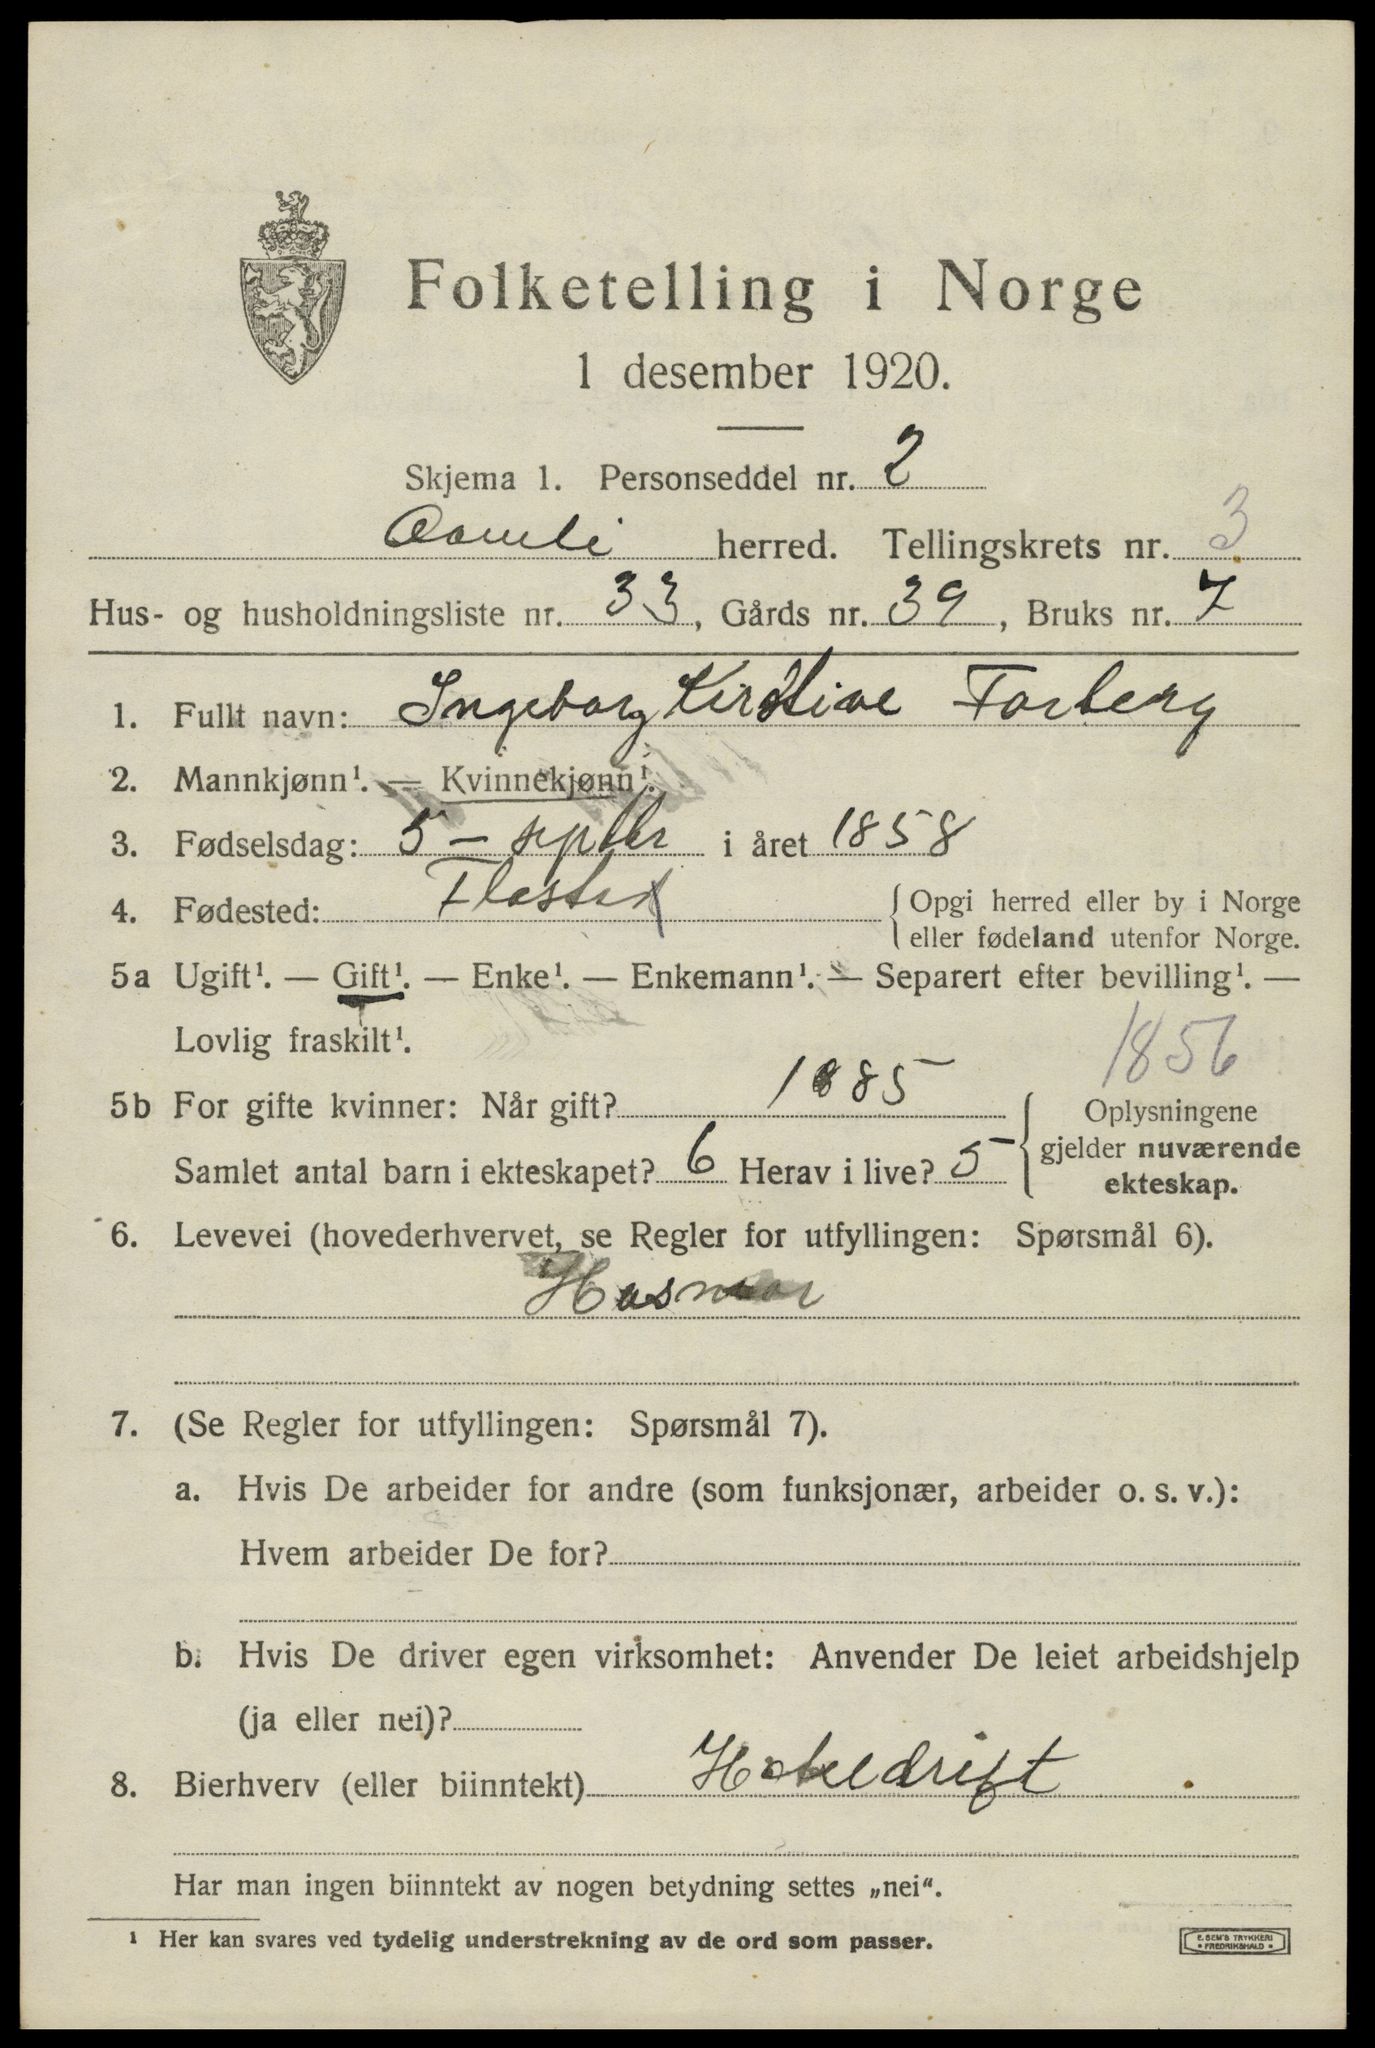 Folketelling i Norge
1 desember 1920.
Skjema 1. Personseddel nr. 2
Aamli herred. Tellingskrets nr. 3
Hus- og husholdningsliste nr. 33, Gårds nr. 39, Bruks nr. 7
1. Fullt navn: Ingeborg Kirstine Forberg
2. Mannkjønn¹. — Kvinnekjønn¹.
3. Fødselsdag: 5 - septbr i året 1858
4. Fødested: { Opgi herred eller by i Norge
eller fødeland utenfor Norge.
5a Ugift¹. — Gift¹. — Enke¹. — Enkemann¹. — Separert efter bevilling¹. —
Lovlig fraskilt¹.
1856
5b For gifte kvinner: Når gift? 1885 { Oplysningene
gjelder nuværende
ekteskap.
Samlet antal barn i ekteskapet? 6 Herav i live? 5
6. Levevei (hovederhvervet, se Regler for utfyllingen: Spørsmål 6).
Husmor
7. (Se Regler for utfyllingen: Spørsmål 7).
a. Hvis De arbeider for andre (som funksjonær, arbeider o. s. v.):
Hvem arbeider De for?
b. Hvis De driver egen virksomhet: Anvender De leiet arbeidshjelp
(ja eller nei)?
8. Bierhverv (eller biinntekt) Hoteldrift
Har man ingen biinntekt av nogen betydning settes „nei“.
¹ Her kan svares ved tydelig understrekning av de ord som passer.
E. SEM'S TRYKKERI
• FREDRIKSHALD •